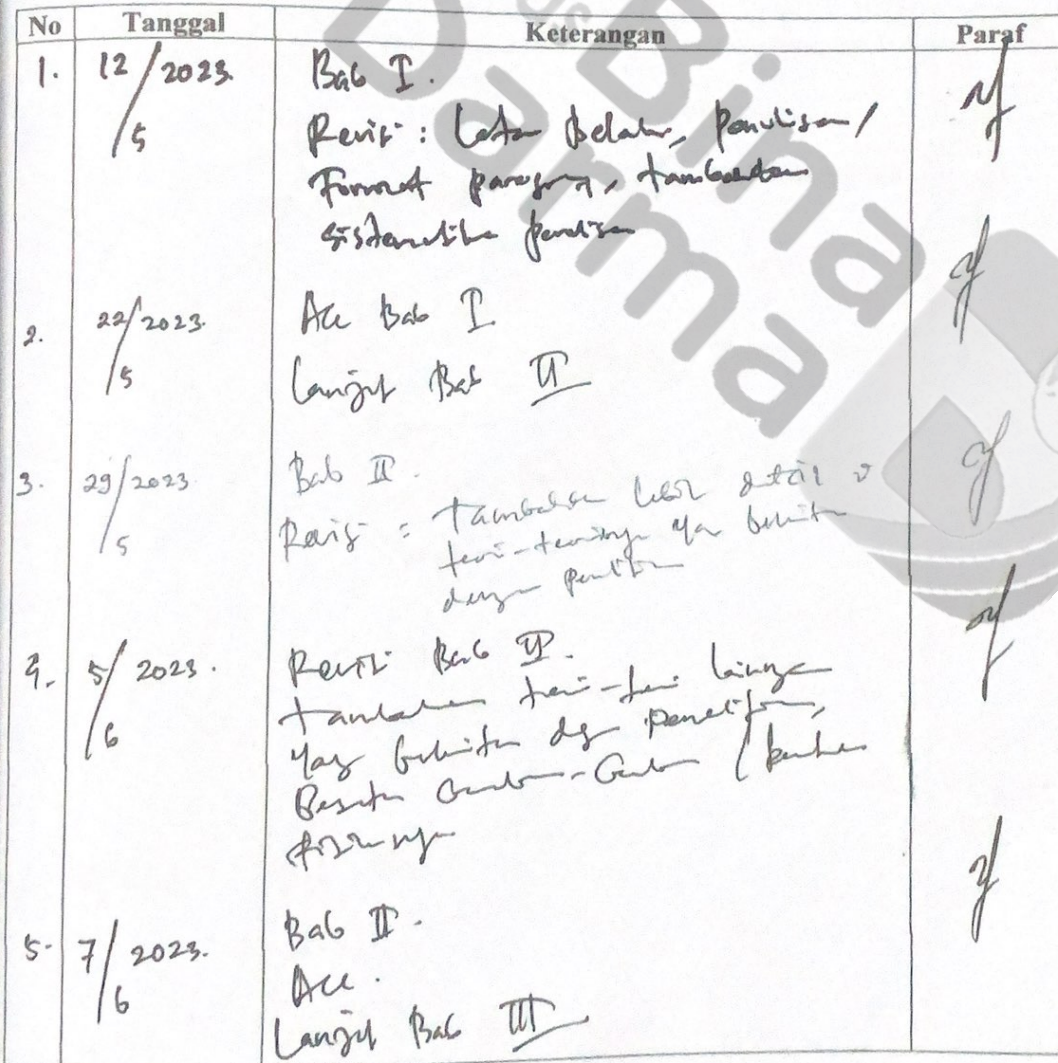 No Tanggal Keterangan Paraf
Bina
Darma
1. 12/5 2023. Bab I.
Revisi : Latar Belakang, penulisan /
Format paragraf, tambahkan
sistematika penulisan
2. 22/5 2023. Acc Bab I
Lanjut Bab II
3. 29/5 2023 Bab II.
Revisi : tambahkan lebih detail
teori-teorinya yang berkaitan
dengan penelitian
4. 5/6 2023. Revisi Bab II.
tambahkan teori-teori lainnya
yang berkaitan dg penelitian,
Beserta Gambar-Gambar /
5. 7/6 2023. Bab II.
Acc.
Lanjut Bab III